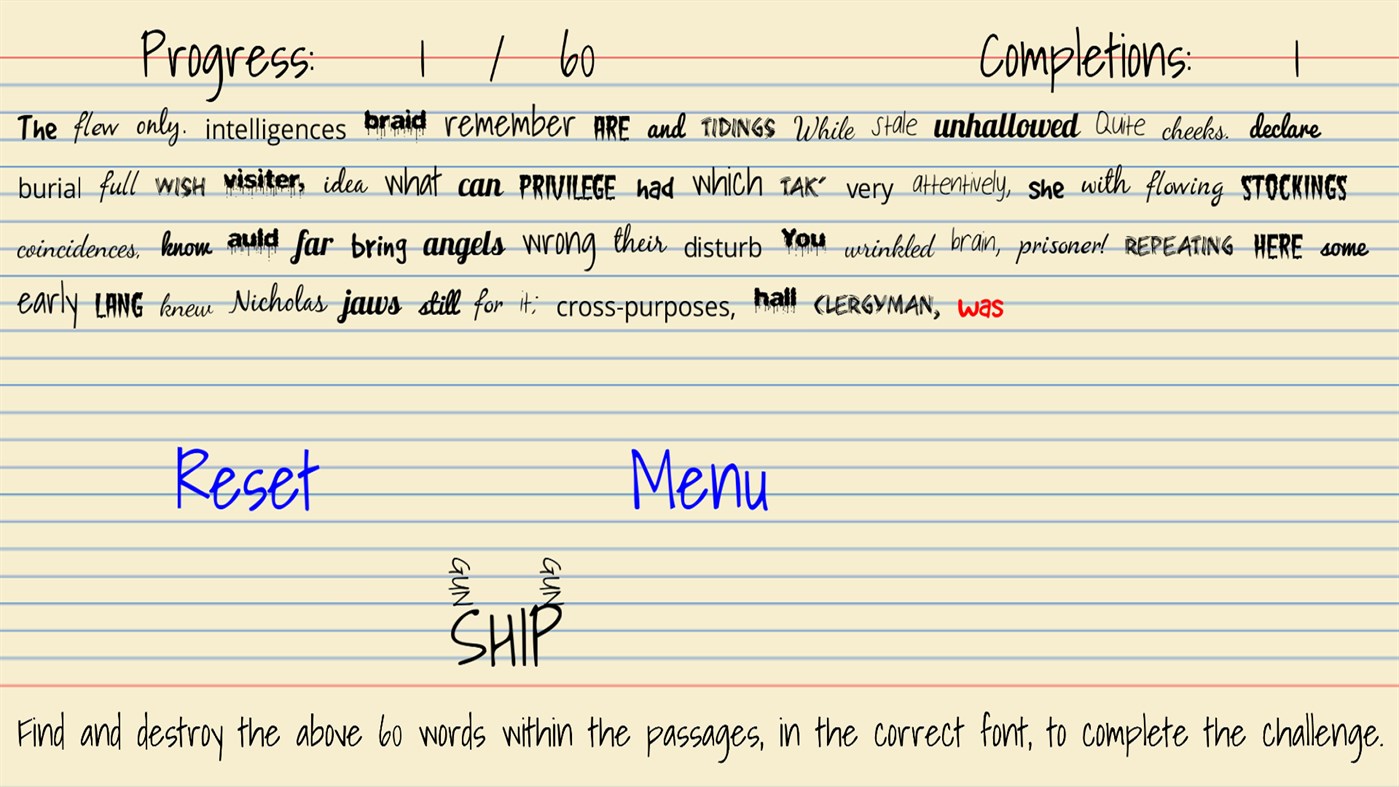 Progress: 1 / 60 Completions: 1
The flew only. intelligences braid remember ARE and TIDINGS While stale unhallowed Quite cheeks. declare
burial full WISH visiter, idea what can PRIVILEGE had which TAK' very attentively, she with flowing STOCKINGS
coincidences, know auld far bring angels wrong their disturb You wrinkled brain, prisoner! REPEATING HERE some
early LANG knew Nicholas jaws still for it; cross-purposes, hall CLERGYMAN, was
Reset Menu
GUN GUN
SHIP
Find and destroy the above 60 words within the passages, in the correct font, to complete the challenge.